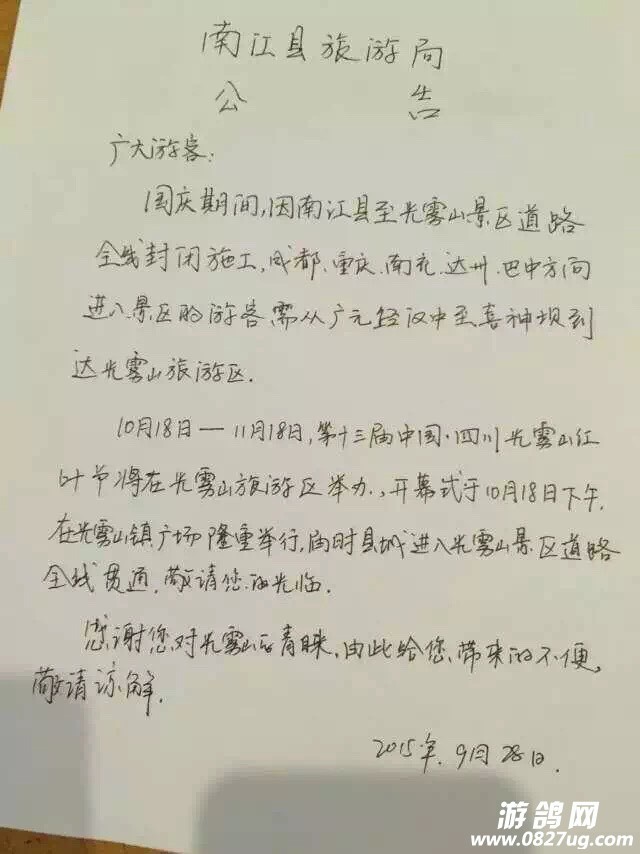 南江县旅游局
公 告
广大游客:
国庆期间,因南江县至光雾山景区道路
全线封闭施工,成都、重庆、南充、达州、巴中方向
进入景区的游客需从广元经汉中至喜神坝到
达光雾山旅游区.
10月18日—11月18日,第十三届中国·四川光雾山红
叶节将在光雾山旅游区举办,开幕式于10月18日下午
在光雾山镇广场隆重举行,届时县城进入光雾山景区道路
全线贯通,敬请您的光临.
感谢您对光雾山的青睐,由此给您带来的不便,
敬请谅解.
2015年.9月28日.
游鸽网
www.0827ug.com